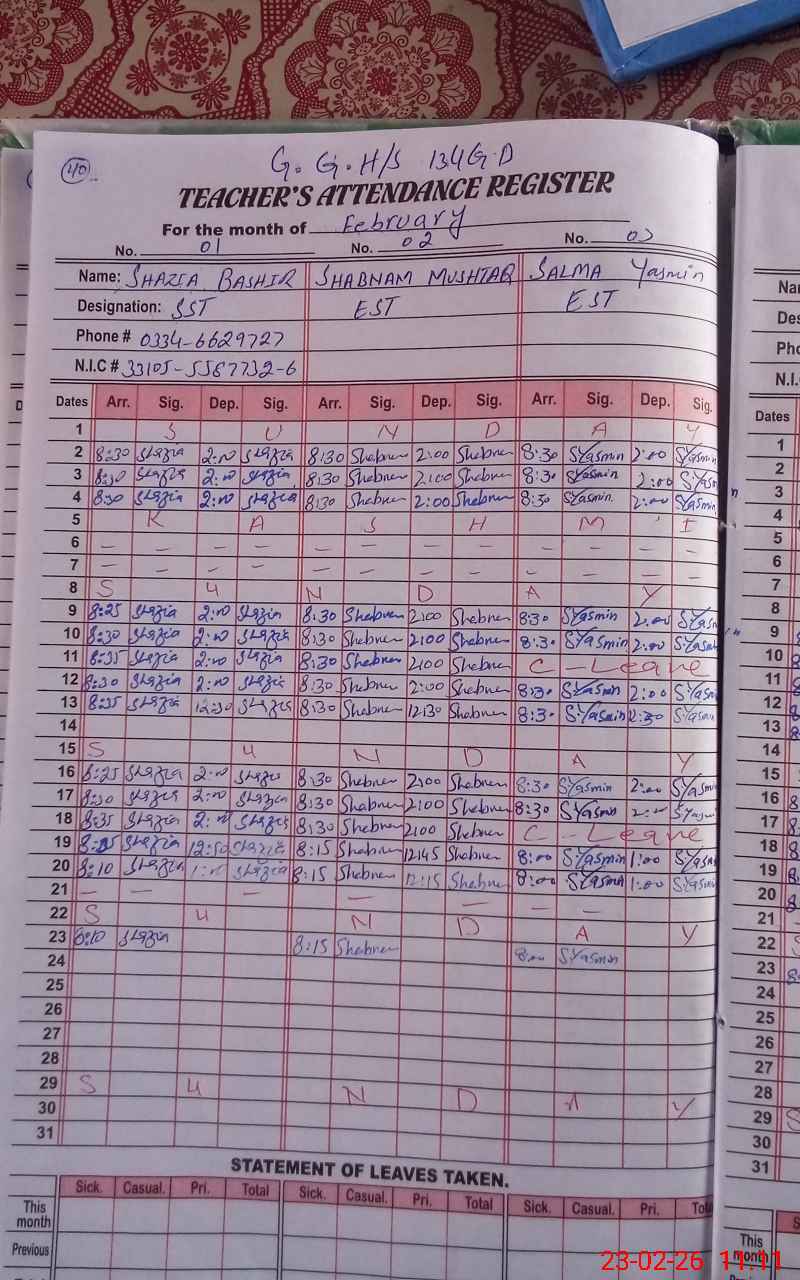 40
G.G.H/S 134 G.D
TEACHER'S ATTENDANCE REGISTER
For the month of February
No. 01 No. 02 No. 03
Name: SHAZIA BASHIR SHABNAM MUSHTAQ SALMA Yasmin
Designation: SST EST EST
Phone # 0334-6629727
N.I.C # 33105-5587732-6
Dates Arr. Sig. Dep. Sig. Arr. Sig. Dep. Sig. Arr. Sig. Dep. Sig.
1 S U N D A Y
2 8:30 Shazia 2:00 Shazia 8:30 Shabnam 2:00 Shabnam 8:30 SYasmin 2:00 SYasmin
3 8:30 Shazia 2:00 Shazia 8:30 Shabnam 2:00 Shabnam 8:30 SYasmin 2:00 SYasm
4 8:30 Shazia 2:00 Shazia 8:30 Shabnam 2:00 Shabnam 8:30 SYasmin 2:00 SYasm
5 K A S H M I
6 – – – – – – – – – – – –
7 – – – – – – – – – – – –
8 S U N D A Y
9 8:25 Shazia 2:00 Shazia 8:30 Shabnam 2:00 Shabnam 8:30 SYasmin 2:00 SYasm
10 8:30 Shazia 2:00 Shazia 8:30 Shabnam 2:00 Shabnam 8:30 SYasmin 2:00 SYasm
11 8:35 Shazia 2:00 Shazia 8:30 Shabnam 2:00 Shabnam C - Leave
12 8:30 Shazia 2:00 Shazia 8:30 Shabnam 2:00 Shabnam 8:30 SYasmin 2:00 SYasm
13 8:35 Shazia 12:30 Shazia 8:30 Shabnam 12:30 Shabnam 8:30 SYasmin 12:30 SYasm
14
15 S U N D A Y
16 8:25 Shazia 2:00 Shazia 8:30 Shabnam 2:00 Shabnam 8:30 SYasmin 2:00 SYasm
17 8:30 Shazia 2:00 Shazia 8:30 Shabnam 2:00 Shabnam 8:30 SYasmin 2:00 SYasm
18 8:35 Shazia 2:00 Shazia 8:30 Shabnam 2:00 Shabnam C - Leave
19 Shazia 12:50 Shazia 8:15 Shabnam 12:45 Shabnam 8:00 SYasmin 1:00 SYasm
20 8:10 Shazia 1:00 Shazia 8:15 Shabnam 12:15 Shabnam 8:00 SYasmin 1:00 SYasmin
21 – – – – – – –
22 S U N D A Y
23 8:10 Shazia 8:15 Shabnam 8:00 SYasmin
24
25
26
27
28
29 S U N D A Y
30
31
STATEMENT OF LEAVES TAKEN.
Sick. Casual. Pri. Total Sick. Casual. Pri. Total Sick. Casual. Pri. Total
This month
Previous
Total
Dates
1
2
3
4
5
6
7
8
9
10
11
12
13
14
15
16
17
18
19
20
21
22
23
24
25
26
27
28
29
30
31
This month
23-02-26 11:11